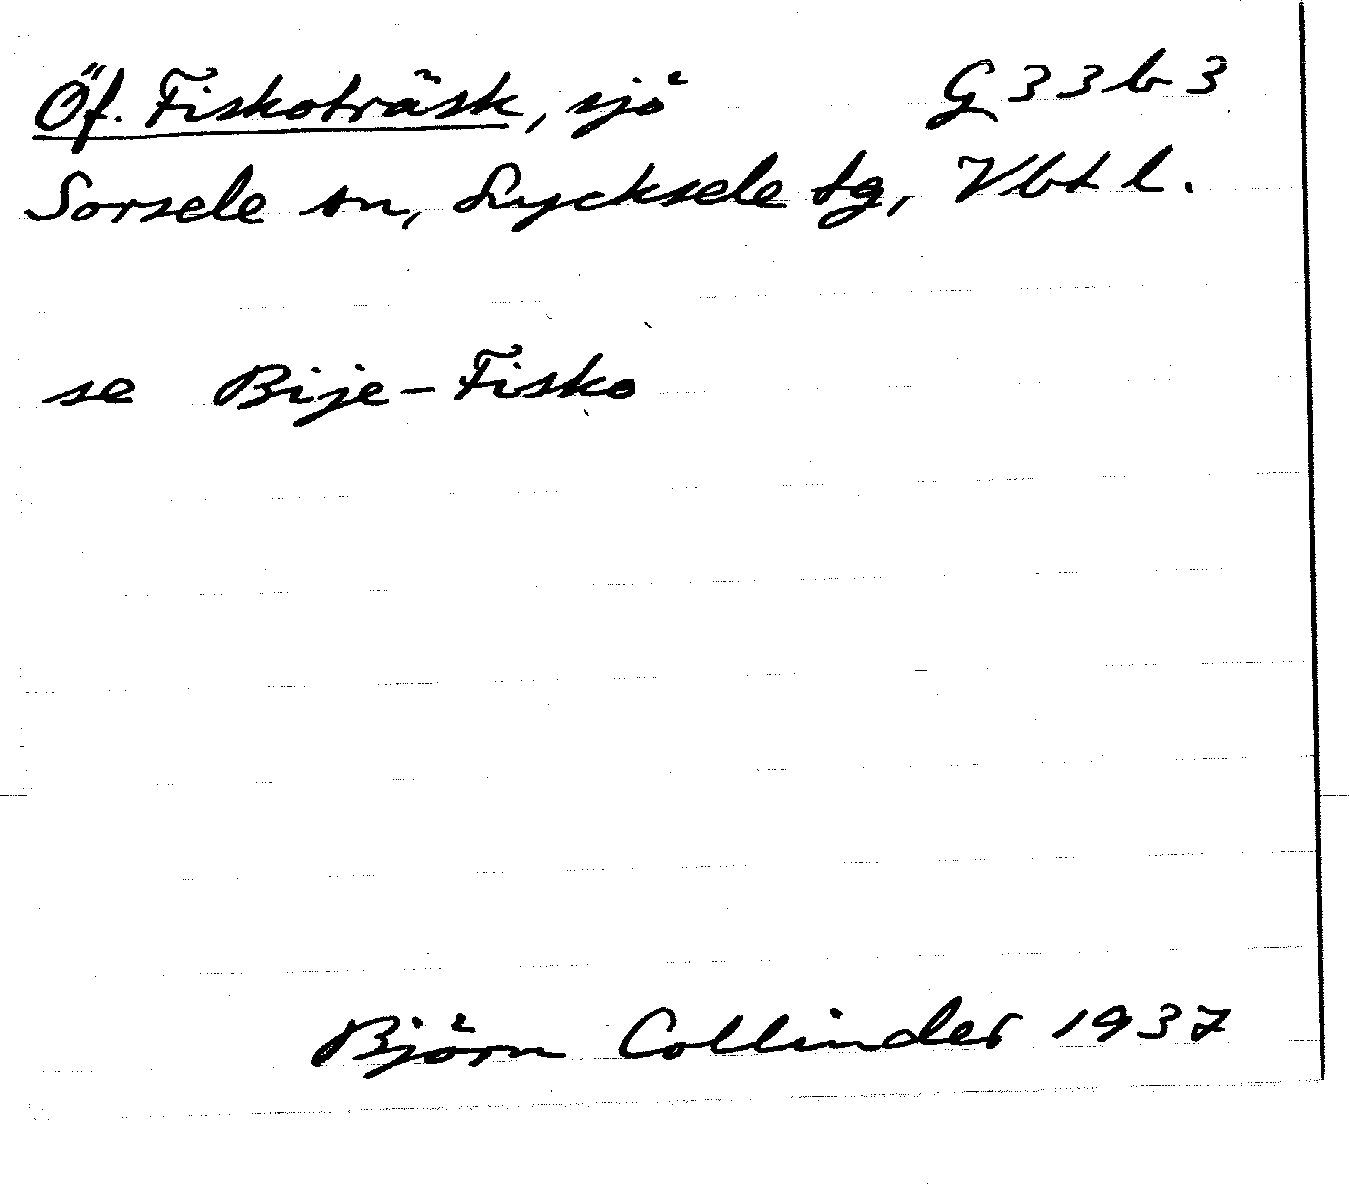 Öf. Fiskoträsk, sjö G 33 b 3
Sorsele sn, Lycksele tg, Vbtl.
se Bije-Fisko
Björn Collinder 1937